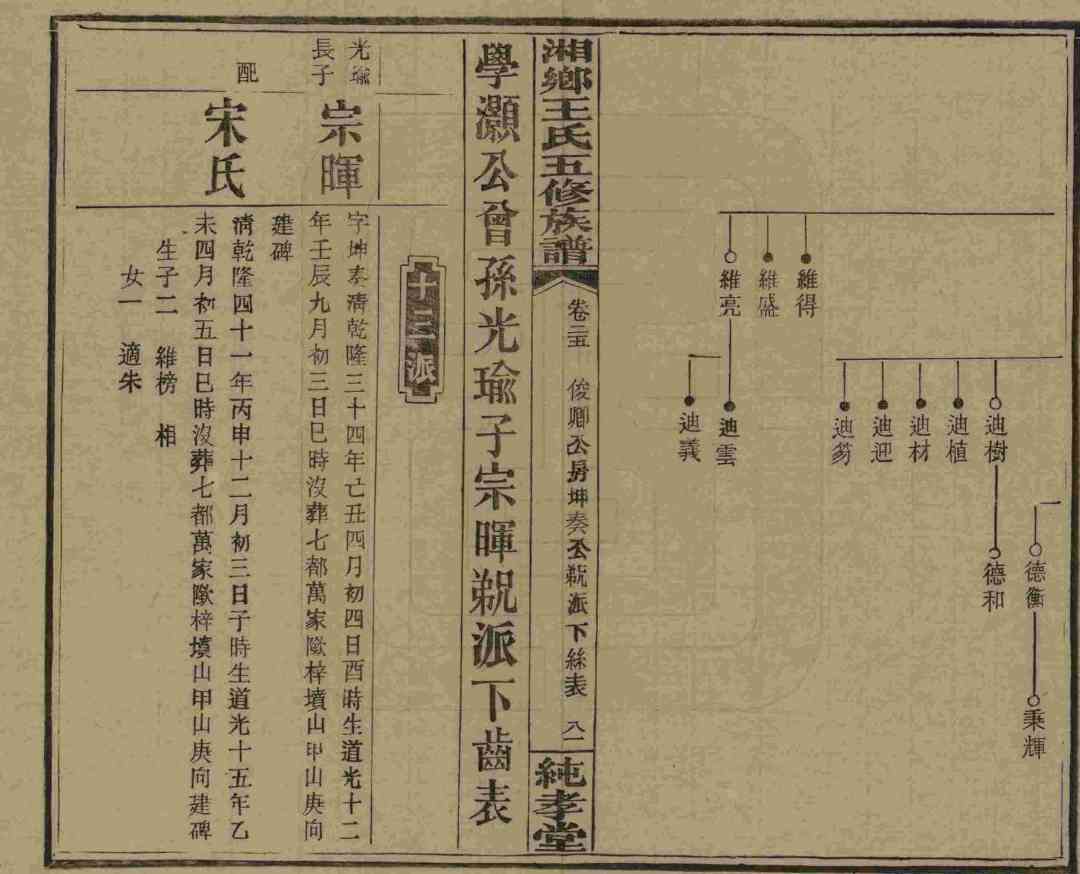 維得
維盛
維亮
迪樹
迪植
迪材
迪迎
迪芴
迪雲
迪義
德衡
德和
秉輝
湘鄉王氏五修族譜
卷二五
俊卿公房坤奏公覣派下絲表
八一
純孝堂
學灝公曾孫光瑜子宗暉覣派下齒表
十三派
光瑜
長子
宗暉
字坤奏淸乾隆三十四年亡丑四月初四日酉時生道光十二
年壬辰九月初三日巳時沒葬七都萬家歘梓墳山甲山庚向
建碑
配
宋氏
淸乾隆四十一年丙申十二月初三日子時生道光十五年乙
未四月初五日巳時沒葬七都萬家歘梓墳山甲山庚向建碑
生子二 維榜 相
女一 適朱